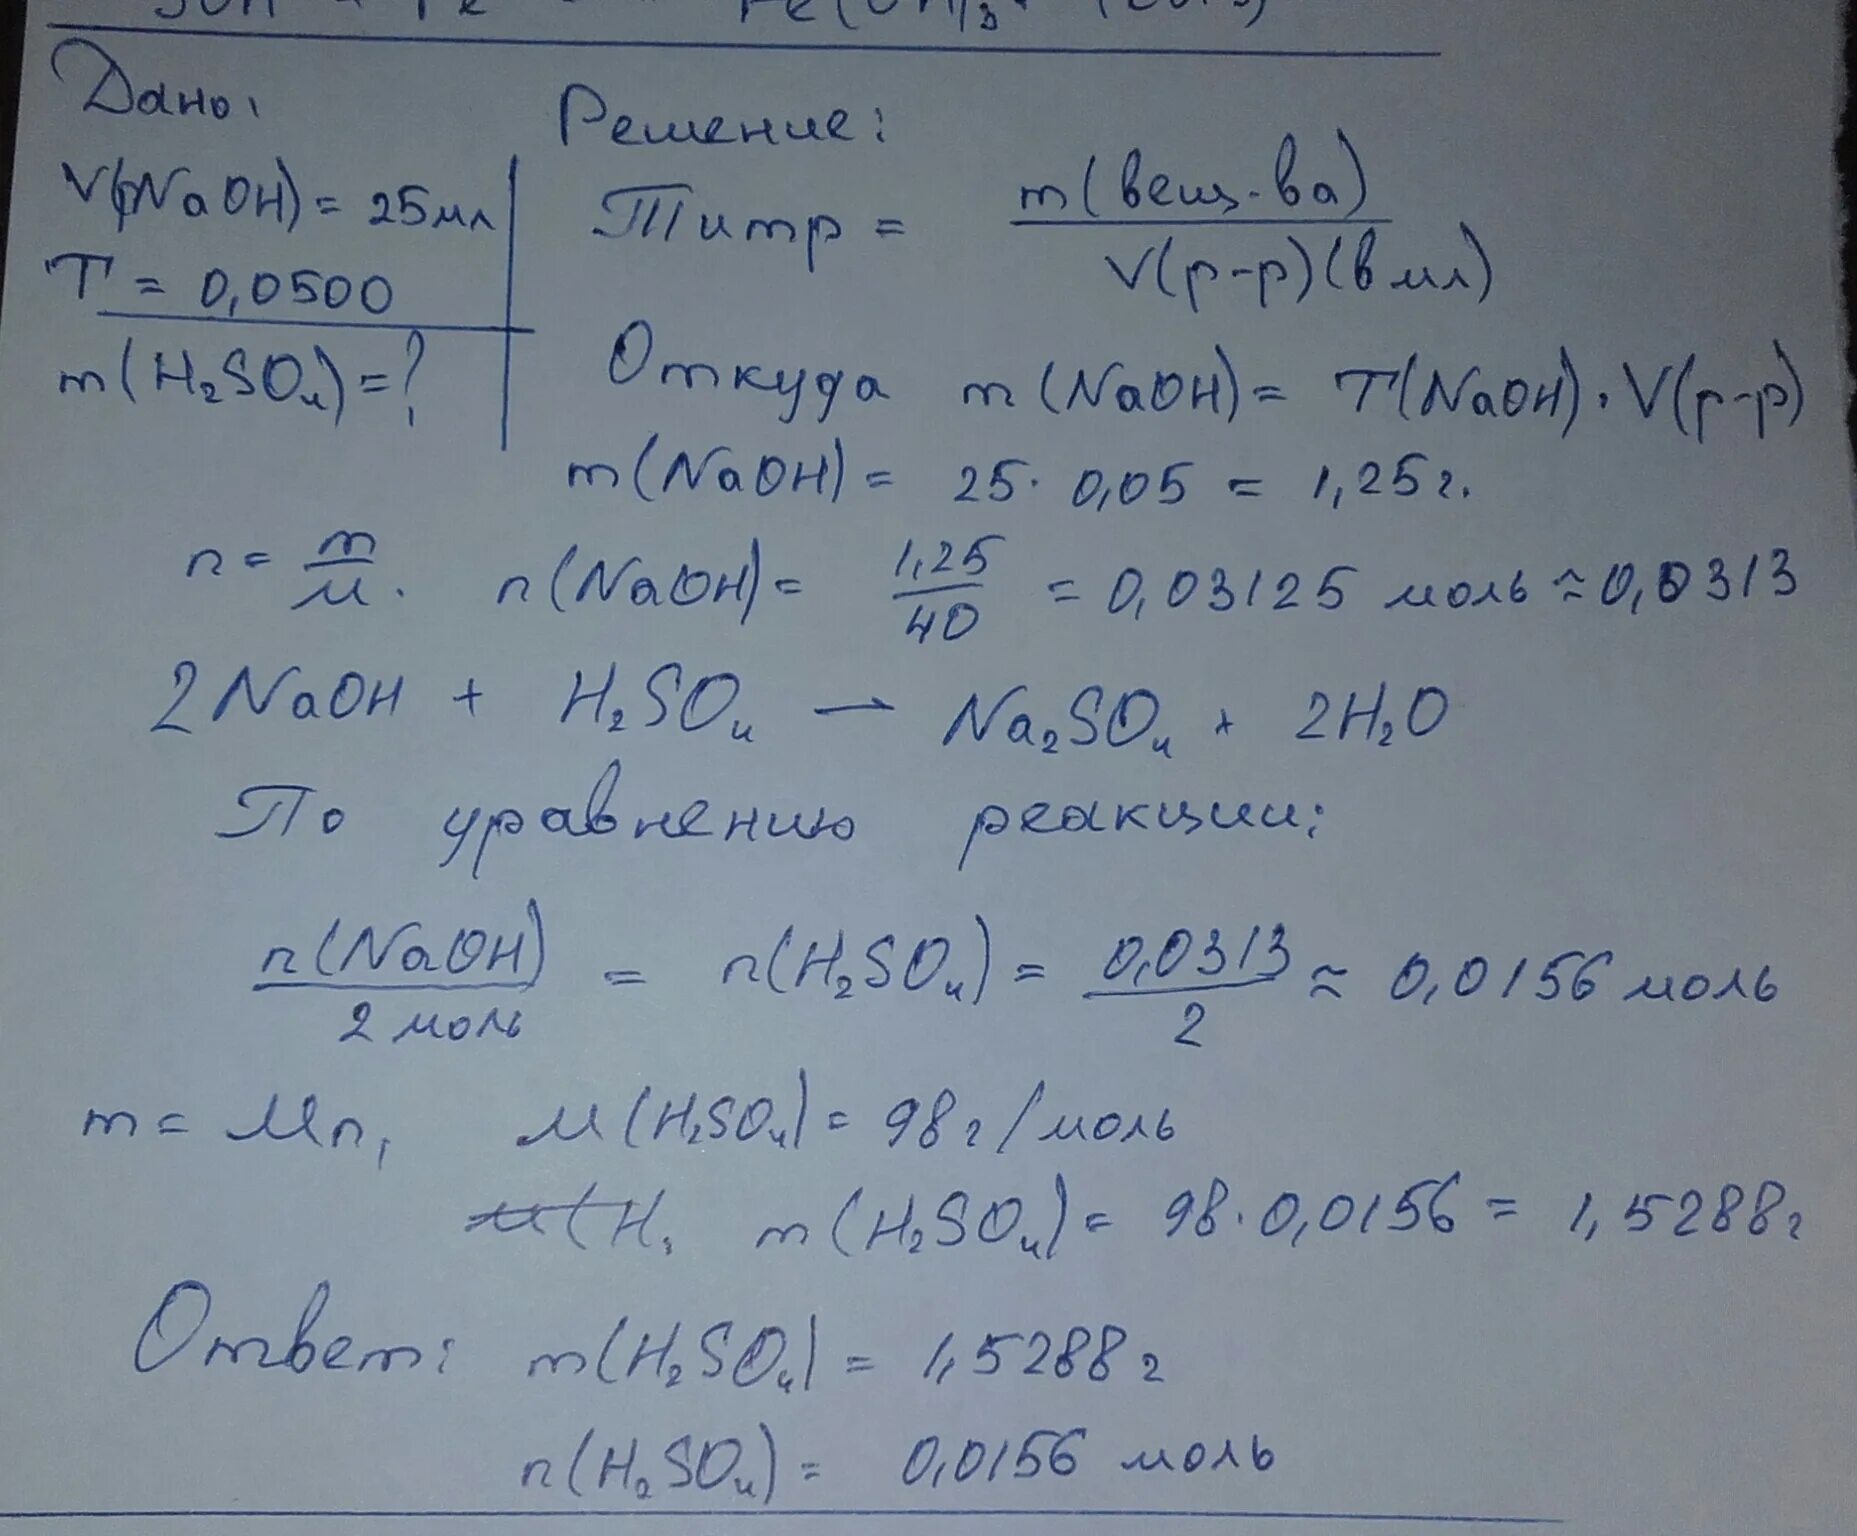 Fe(OH)₃
Дано:
V(NaOH) = 25 мл
T = 0,0500
m(H₂SO₄) = ?
Решение:
Титр = m(вещ-ва) / V(р-р)(в мл)
Откуда m(NaOH) = T(NaOH) · V(р-р)
m(NaOH) = 25 · 0,05 = 1,25 г.
n = m/M. n(NaOH) = 1,25/40 = 0,03125 моль ≈ 0,0313
2NaOH + H₂SO₄ — Na₂SO₄ + 2H₂O
По уравнению реакции:
n(NaOH) / 2 моль = n(H₂SO₄) = 0,0313/2 ≈ 0,0156 моль
m = Mn, M(H₂SO₄) = 98 г/моль
m(H₂SO₄) = 98 · 0,0156 = 1,5288 г
Ответ: m(H₂SO₄) = 1,5288 г
n(H₂SO₄) = 0,0156 моль